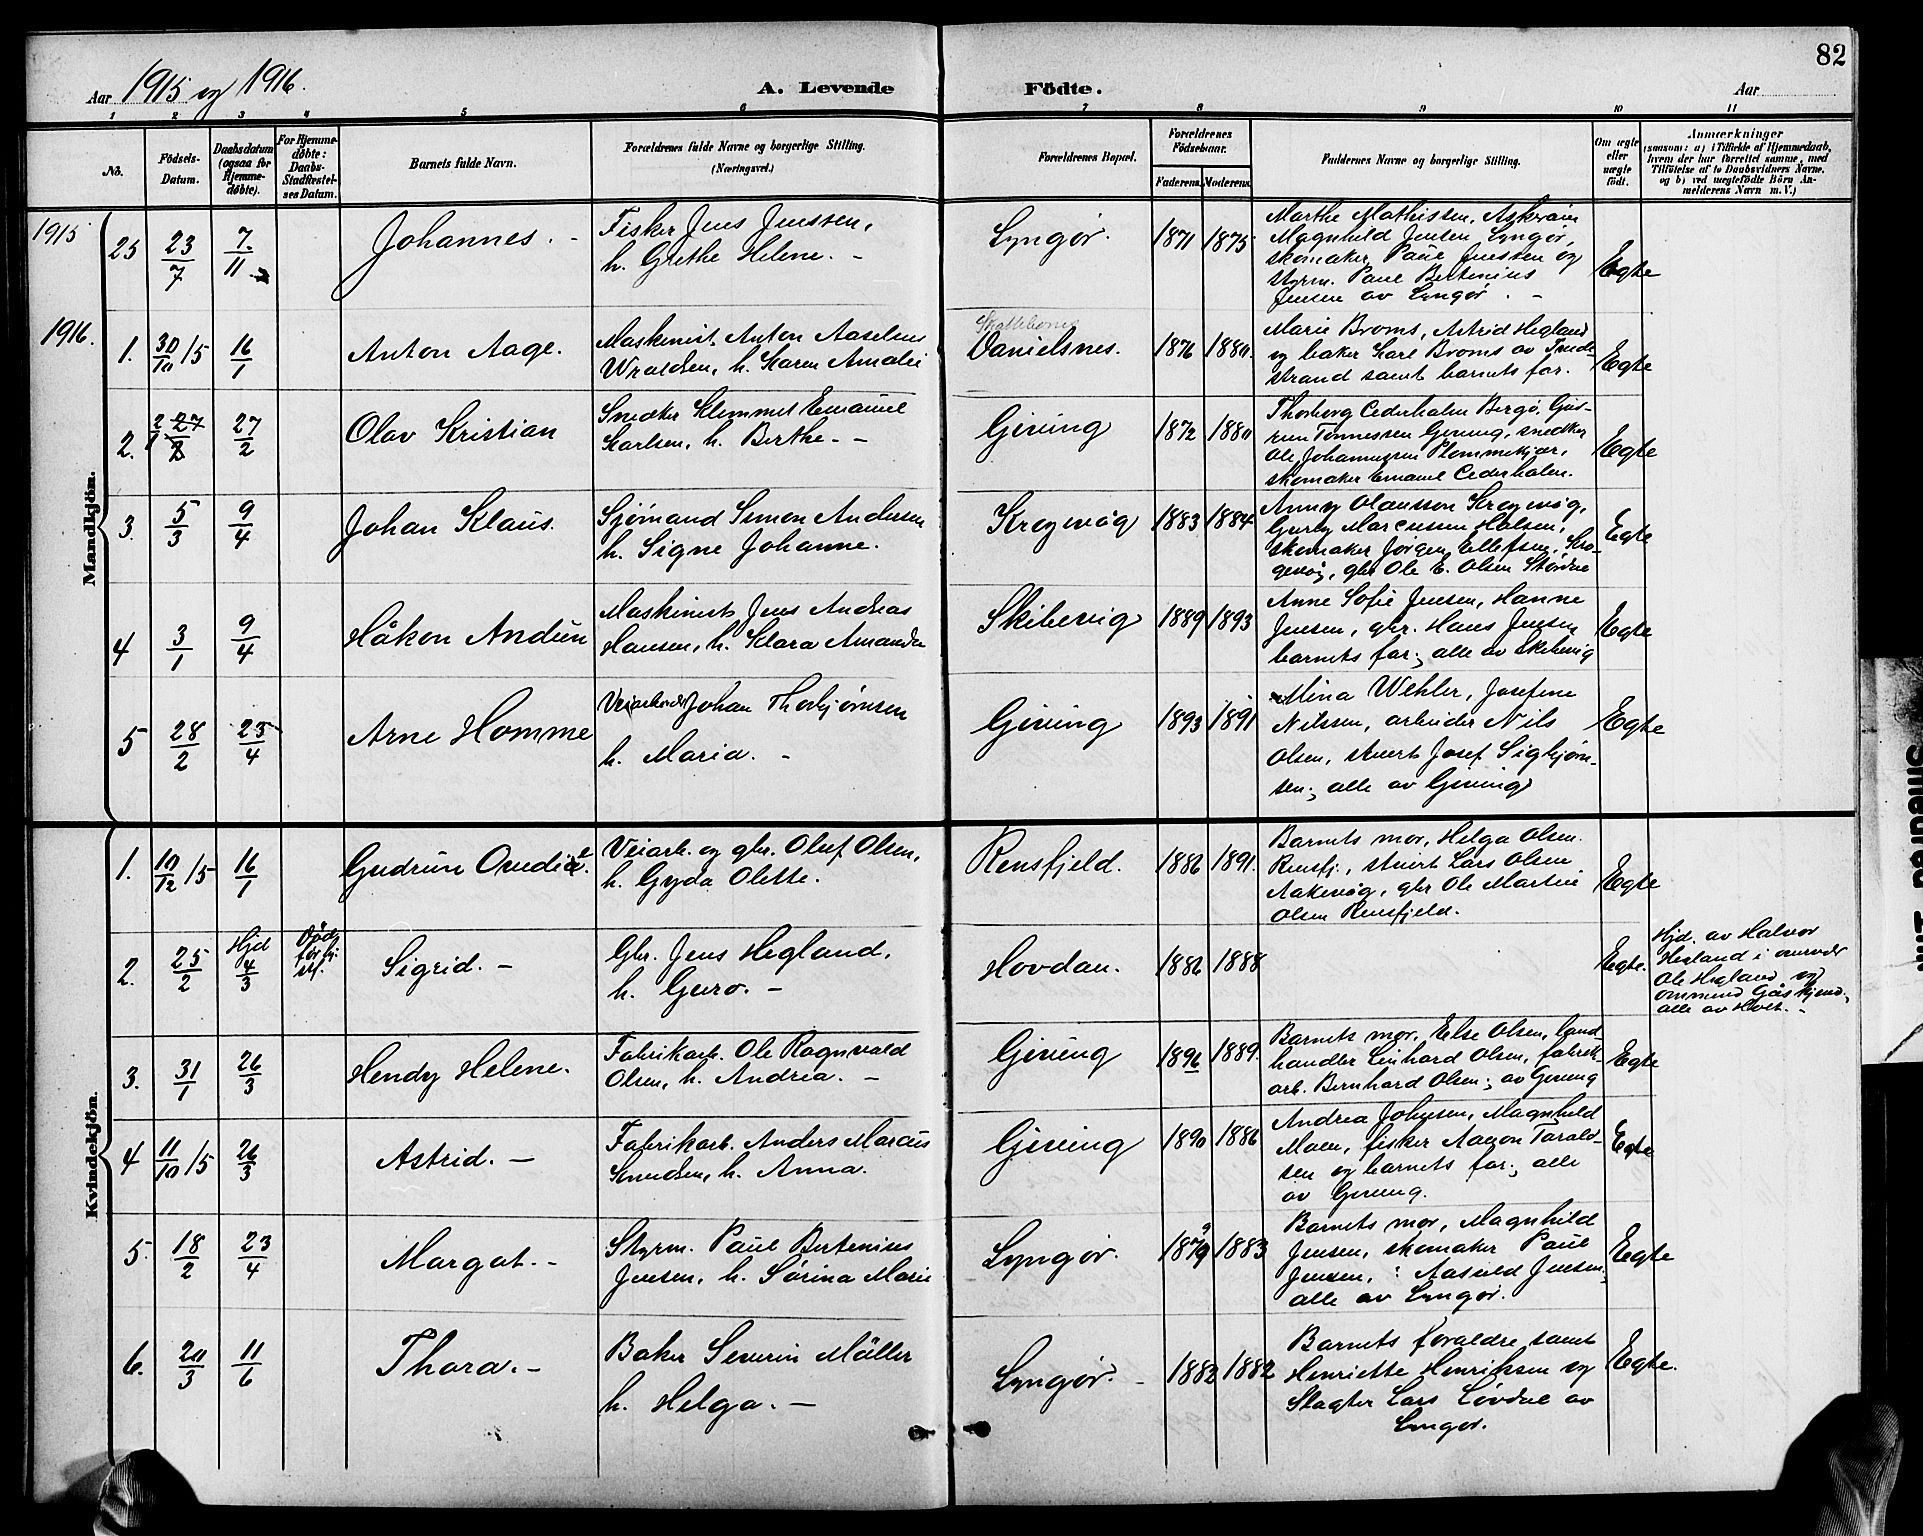 82
Aar 1915 og 1916.
A. Levende Födte.
Aar
1 2 3 4 5 6 7 8 9 10 11
No.
Födsels-Datum.
Daabsdatum (ogsaa for Hjemme-döbte).
For Hjemme-döbte: Daabs-Stadfæstel-ses Datum.
Barnets fulde Navn.
Forældrenes fulde Navne og borgerlige Stilling.
(Næringsvei.)
Forældrenes Bopæl.
Forældrenes Födselsaar.
Faderens. Moderens.
Faddernes Navne og borgerlige Stilling.
Om ægte eller uægte födt.
Anmærkninger
(saasom: a) i Tilfælde af Hjemmedaab, hvem der har forrettet samme, med Tilföielse af to Daabsvidners Navne, og b) ved uægtefödte Börn Anmelderens Navn m. V.)
Mandkjön.
1915
25 23/7 7/11 Johannes. -
Fisker Jens Jenssen,
h. Grethe Helene. -
Lyngør. 1871 1875
Marthe Mathissen,
Magnhild Jensen Lyngør,
skomaker Paul Jenssen og
styrm. Paul Bertenius
Jensen av Lyngør. -
Egte
1916.
1. 30/10 15 16/1 Anton Aage.
Maskinist Anton Aaselsen
h. Karen Amalie
Danielsnes. 1876 1880.
Marie Broms, Astrid Hegland
og baker Karl Broms av
strand samt barnets far.
Egte
2. 27/2 Olav Kristian
Snedker Klemmet Emanuel
Karlsen, h. Berthe. -
Gjeving 1872 1880
Thorborg Cederholm Bergø,
Tønnessen Gjeving, snedker
Ole Johannesen Plommekjær,
skomaker Emanuel Cederholm.
Egte
3. 5/3 9/4 Johan Klaus.
Sjømand Simon Andersen
h. Signe Johanne.
Krogvåg 1883 1884
Anny Olausson Krogvåg,
Marcussen Halsen,
skomaker Jørgen Ellefsen, Kro-
gevåg, gbr Ole E. Olsen
Egte
4 3/1 9/4 Håkon Andün
Maskinist Jens Andreas
Hansen, h. Klara Amanda
Skibevig 1889 1893
Anne Sofie Jensen, Hanne
Jensen, gbr. Hans Jensen
barnets far; alle av Skibevig
Egte
5 28/2 25/4 Arne Homme
Veiarbeid Johan Thorbjørnsen
h. Maria. -
Gjeving 1893 1891
Mina Wehler, Josefine
Nilssen, arbeider Nils
Olsen, stuert Josef Sigbjørn-
sen; alle av Gjeving
Egte
Kvindekjön.
1. 10/12 15 16/1 Gudrun
Veiarb. og gbr. Oluf Olsen,
h. Gyda Olette.
Rensfjeld. 1886 1891.
Barnets mor, Helga Olsen
Rensfj., stuert Lars Olsen
Aakevåg, gbr Ole Martin
Olsen Rensfjeld.
Egte
2. 25/2 Hjd 4/3 Sigrid. -
Gbr. Jens Hegland,
h. Guro. -
Hovdan. 1886 1888
Egte.
Hjd. av Halvor
Hegland i nærvær
Ole Hegland og
alle av Holt. -
3. 31/1 26/3 Hendy Helene.
Fabrikarb. Ole Ragnvald
Olsen, h. Andrea. -
Gjeving 1896 1889.
Barnets mor, Else Olsen, land-
handler Linhard Olsen, fabrik-
arb. Bernhard Olsen; av Gjeving
Egte
4 11/10 15 26/3 Astrid. -
Fabrikarb. Anders Marcus
Knudsen, h. Anna.
Gjeving 1890 1886
Andrea Johnsen, Magnhild
Moen, fisker Aanon Tarald-
sen og barnets far; alle
av Gjeving.
Egte
5. 18/2 23/4 Margot. -
Styrm. Paul Bertenius
Jensen, h. Sørina Marie
Lyngør. 1879 1883
Barnets mor, Magnhild
Jensen, skomaker Paul
Jensen, Aasvald Jensen,
alle av Lyngør.
Egte
6. 20/3 11/6 Thora. -
Baker Severin Möller
h. Helga. -
Lyngør. - 1882 1882
Barnets foraldre samt
Henriette Henriksen og
Slagter Lars Løvdal av
Lyngør.
Egte.